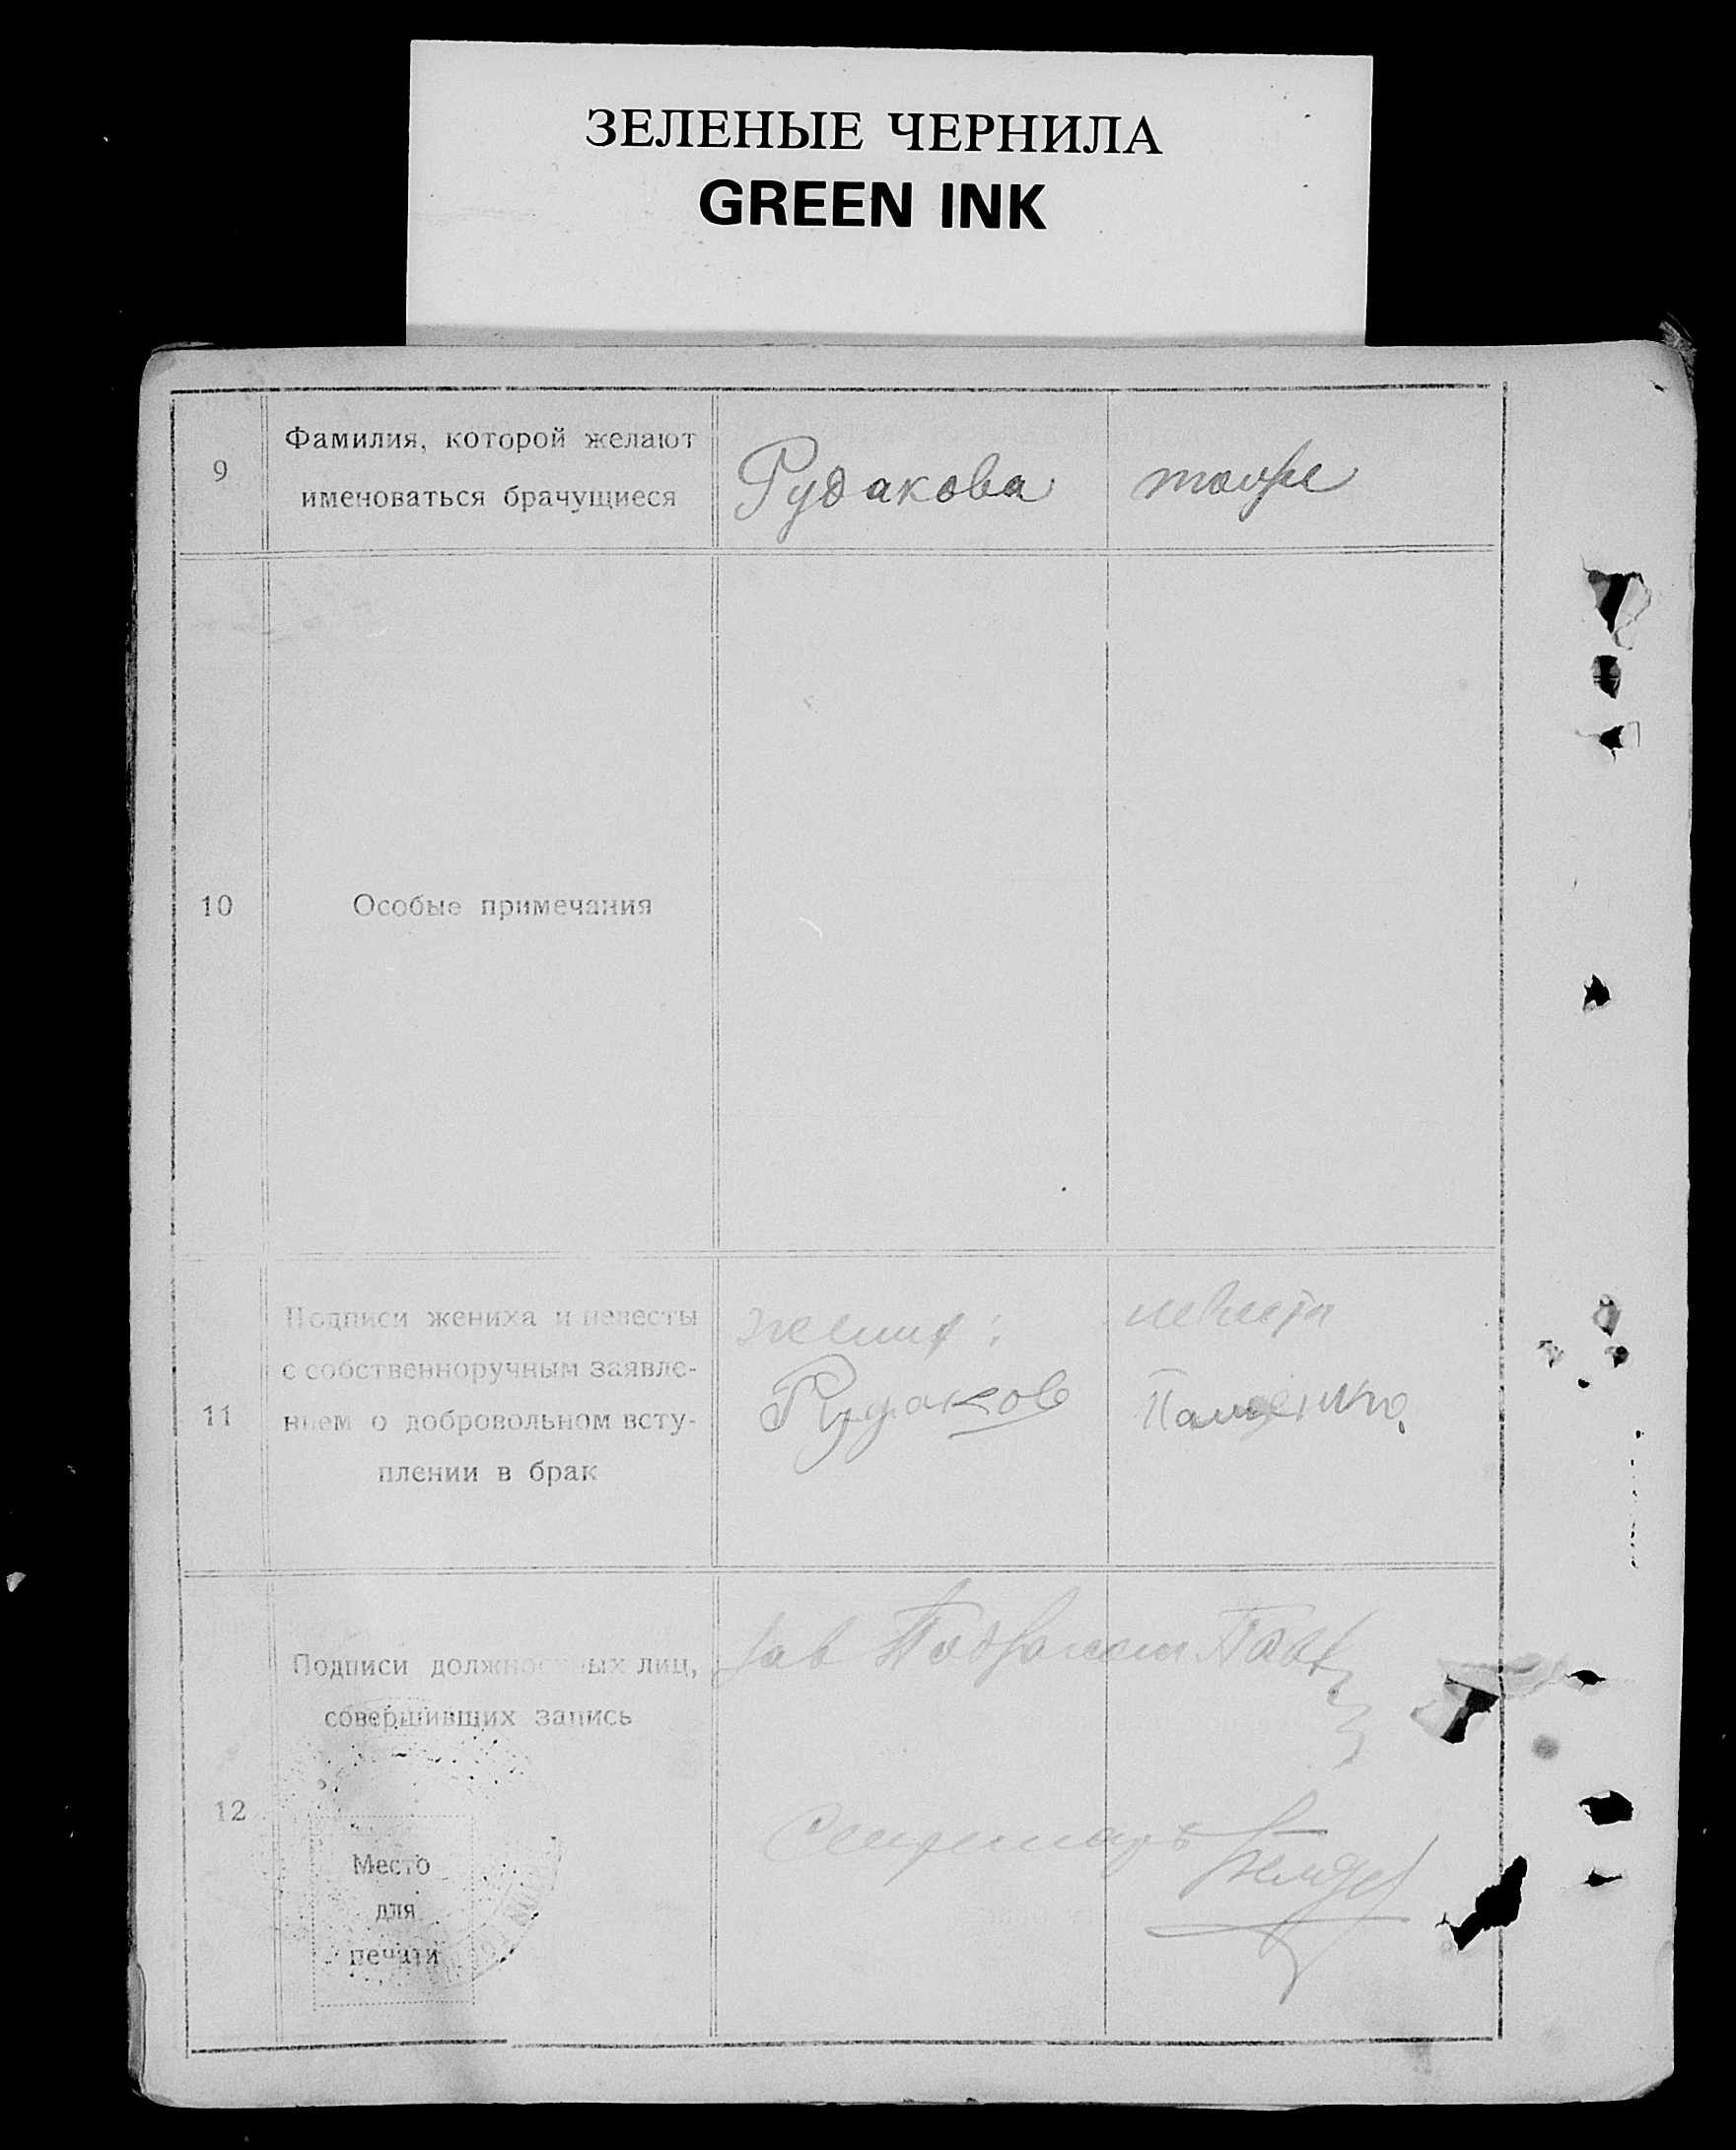 ЗЕЛЕНЫЕ ЧЕРНИЛА
GREEN INK
9
Фамилия, которой желают
именоваться брачущиеся
Рудакова
тоже
10
Особые примечания
11
Подписи жениха и невесты
с собственноручным заявле-
нием о добровольном всту-
плении в брак
жених:
Рудаков
невеста
12
Подписи должностных лиц,
совершивших запись
Зав
Секретарь
Место
для
печати